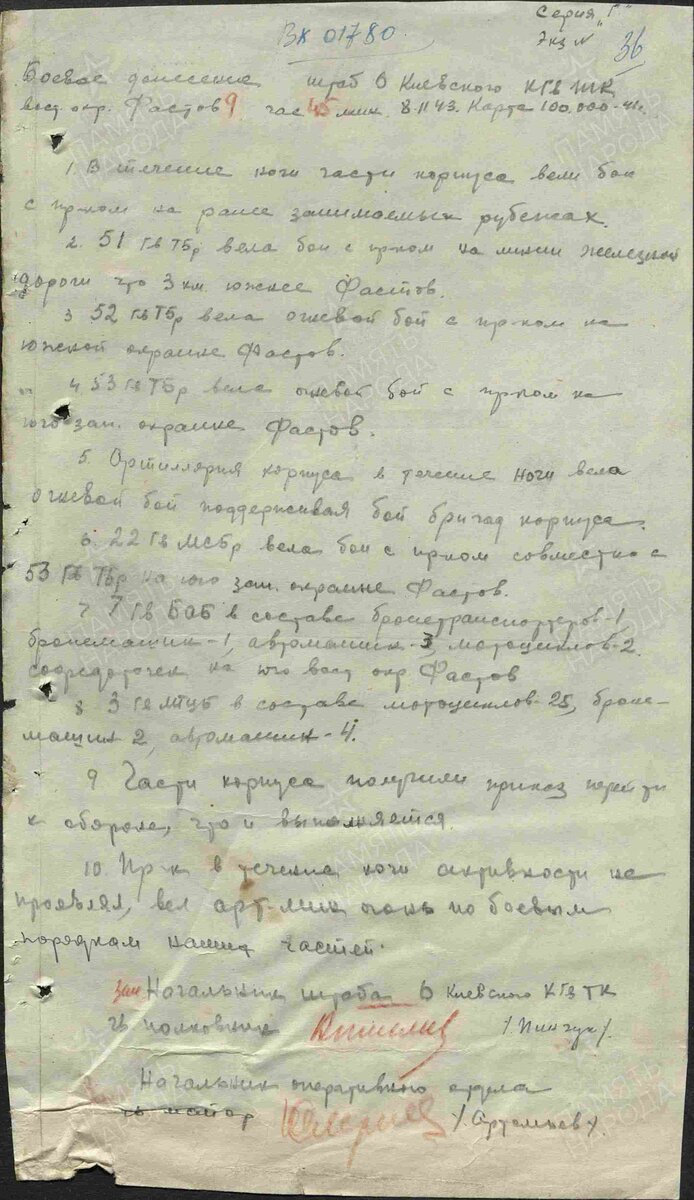 Серия "Г"
Вх 01780
Экз N 36
Боевое донесение штаб 6 Киевского КГв ТК
вост. окр. Фастов 9 час 45 мин. 8.11.43. Карта 100.000-41г.
1. В течение ночи части корпуса вели бои
с пр-ком на ранее занимаемых рубежах.
2. 51 Гв ТБр вела бои с пр-ком на линии железной
дороги что 3 км южнее Фастов.
3 52 Гв ТБр вела огневой бой с пр-ком на
южной окраине Фастов.
4. 53 Гв ТБр вела огневой бой с пр-ком на
юго-зап. окраине Фастов.
5. Артиллерия корпуса в течение ночи вела
огневой бой поддерживая бой бригад корпуса.
6. 22 Гв МСБр вела бои с пр-ком совместно с
53 Гв ТБр на юго зап. окраине Фастов.
7 7 Гв БАБ в составе бронетранспортеров-1,
бронемашин-1, автомашин-3, мотоциклов-2.
сосредоточен на юго вост окр Фастов
8 3 Гв МТЦБ в составе мотоциклов-25, броне-
машин 2, автомашин-4.
9 Части корпуса получили приказ перейти
к обороне, что и выполняется.
10. Пр-к в течение ночи активности не
проявлял, вел арт-мин огонь по боевым
порядкам наших частей.
зам Начальник штаба 6 Киевского КГв ТК
гв полковник /Пинчук/.
Начальник оперативного отдела
гв майор /Артемьев/.
ПАМЯТЬ НАРОДА